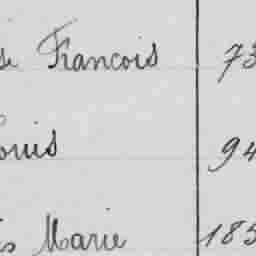 François 73
Louis 94
Marie 185